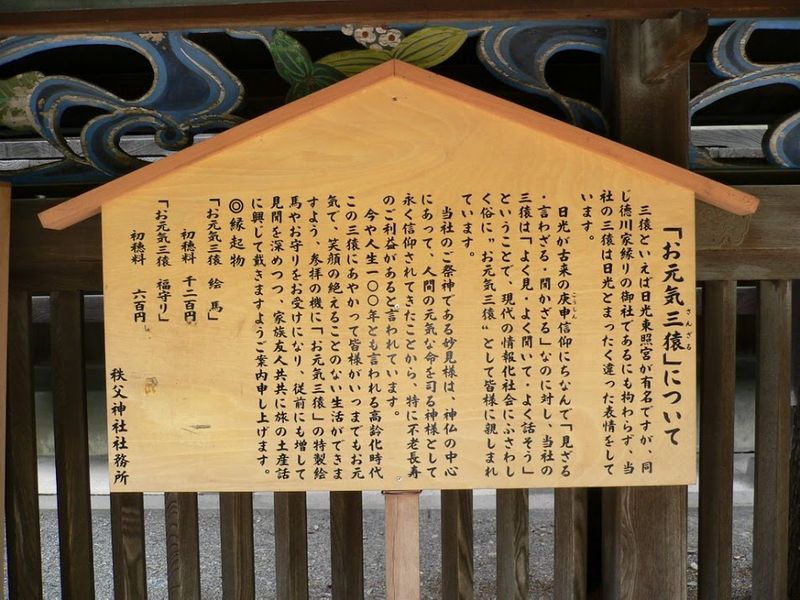 「お元気三猿」について
さんざる
三猿といえば日光東照宮が有名ですが、同
じ徳川家縁りの御社であるにも拘わらず、当
社の三猿は日光とまったく違った表情をして
います。
日光が古来の庚申信仰にちなんで「見ざる
こうしん
・言わざる・聞かざる」なのに対し、当社の
三猿は「よく見・よく聞いて・よく話そう」
ということで、現代の情報化社会にふさわし
く俗に〝お元気三猿〟として皆様に親しまれ
ています。
当社のご祭神である妙見様は、神仏の中心
にあって、人間の元気な命を司る神様として
永く信仰されてきたことから、特に不老長寿
のご利益があると言われています。
今や人生一〇〇年とも言われる高齢化時代
この三猿にあやかって皆様がいつまでもお元
気で、笑顔の絶えることのない生活ができま
すよう、参拝の機に「お元気三猿」の特製絵
馬やお守りをお受けになり、従前にも増して
見聞を深めつつ、家族友人共共に旅の土産話
に興じて戴きますようご案内申し上げます。
◎縁起物
「お元気三猿 絵馬」
初穂料 千二百円
「お元気三猿 福守り」
初穂料 六百円
秩父神社社務所